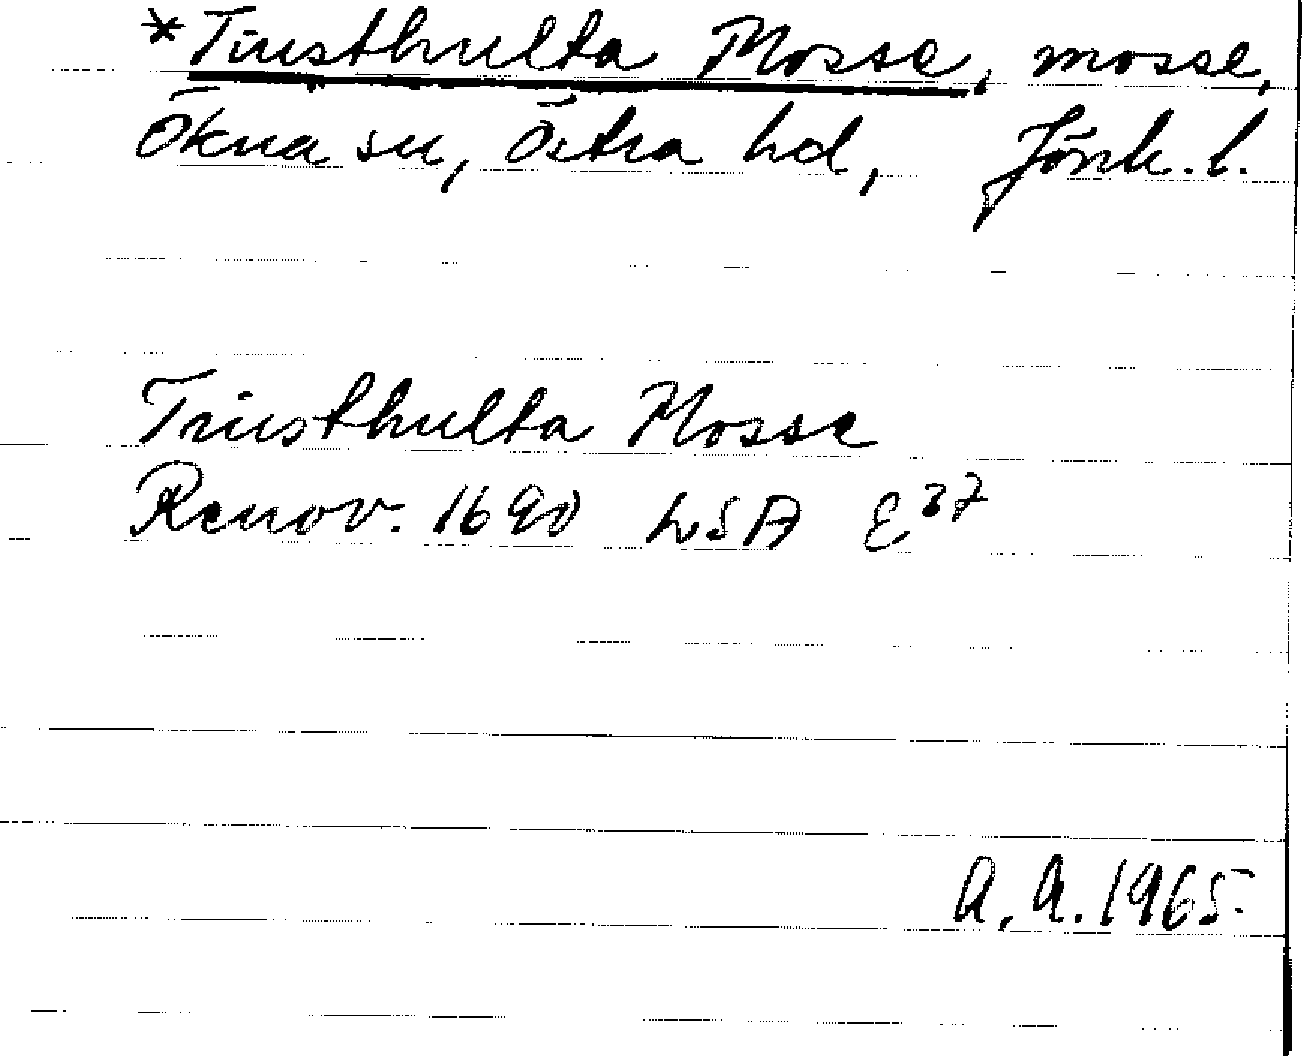 *Tiusthulta Mosse, mosse,
Ökna sn, Östra hd, Jönk. l.
Triusthulta Mosse
Renov. 1690 LSA E 37
A. A. 1965